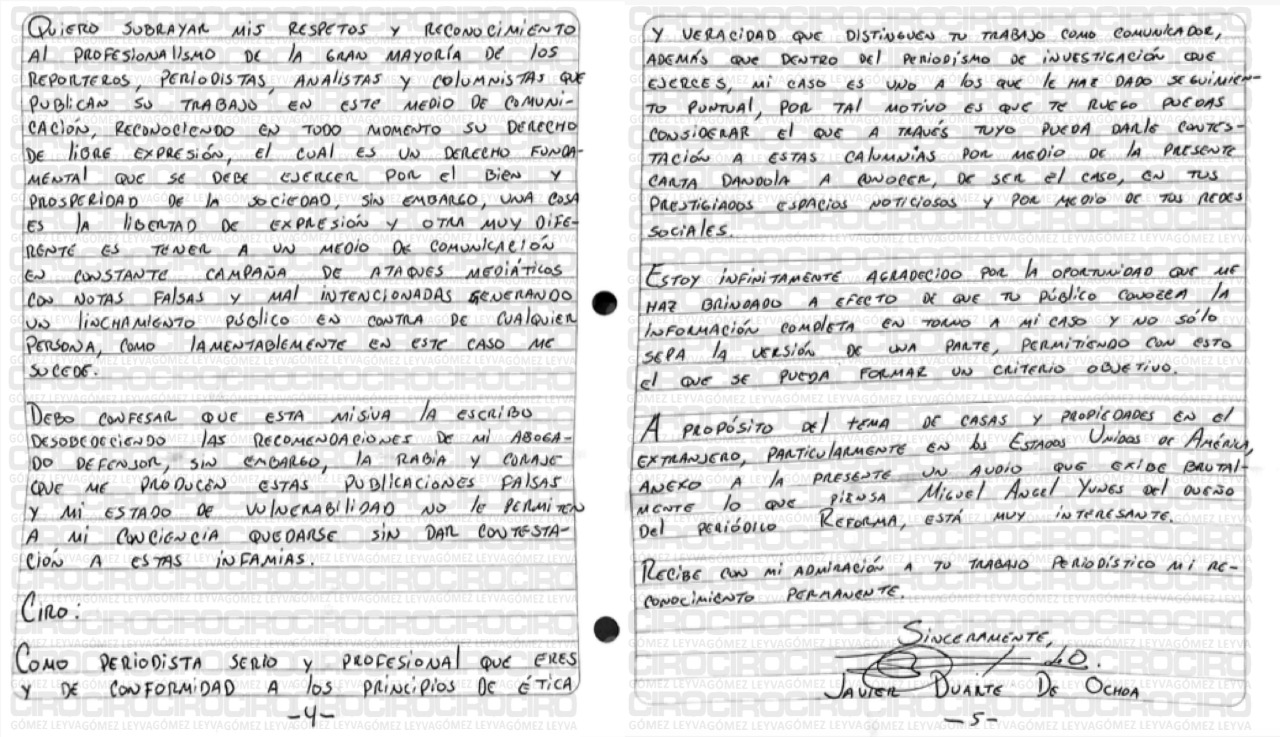 Quiero subrayar mis respetos y reconocimiento
al profesionalismo de la gran mayoría de los
reporteros, periodistas, analistas y columnistas que
publican su trabajo en este medio de comuni-
cación, reconociendo en todo momento su derecho
de libre expresión, el cual es un derecho funda-
mental que se debe ejercer por el bien y
prosperidad de la sociedad, sin embargo, una cosa
es la libertad de expresión y otra muy dife-
rente es tener a un medio de comunicación
en constante campaña de ataques mediáticos
con notas falsas y mal intencionadas generando
un linchamiento público en contra de cualquier
persona, como lamentablemente en este caso me
sucede.
Debo confesar que esta misiva la escribo
desobedeciendo las recomendaciones de mi aboga-
do defensor, sin embargo, la rabia y coraje
que me producen estas publicaciones falsas
y mi estado de vulnerabilidad no le permiten
a mi conciencia quedarse sin dar contesta-
ción a estas infamias.
Ciro:
Como periodista serio y profesional que eres
y de conformidad a los principios de ética
-4-
y veracidad que distinguen tu trabajo como comunicador,
además que dentro del periodismo de investigación que
ejerces, mi caso es uno a los que le haz dado seguimien-
to puntual, por tal motivo es que te ruego puedas
considerar el que a través tuyo pueda darle contes-
tación a estas calumnias por medio de la presente
carta dandola a conocer, de ser el caso, en tus
prestigiados espacios noticiosos y por medio de tus redes
sociales.
Estoy infinitamente agradecido por la oportunidad que me
haz brindado a efecto de que tu público conozca la
información completa en torno a mi caso y no sólo
sepa la versión de una parte, permitiendo con esto
el que se pueda formar un criterio objetivo.
A propósito del tema de casas y propiedades en el
extranjero, particularmente en los Estados Unidos de América,
anexo a la presente un audio que exibe brutal-
mente lo que piensa Miguel Angel Yunes del dueño
del periódico Reforma, está muy interesante.
Recibe con mi admiración a tu trabajo periodístico mi re-
conocimiento permanente.
Sinceramente,
Javier Duarte De Ochoa
-5-